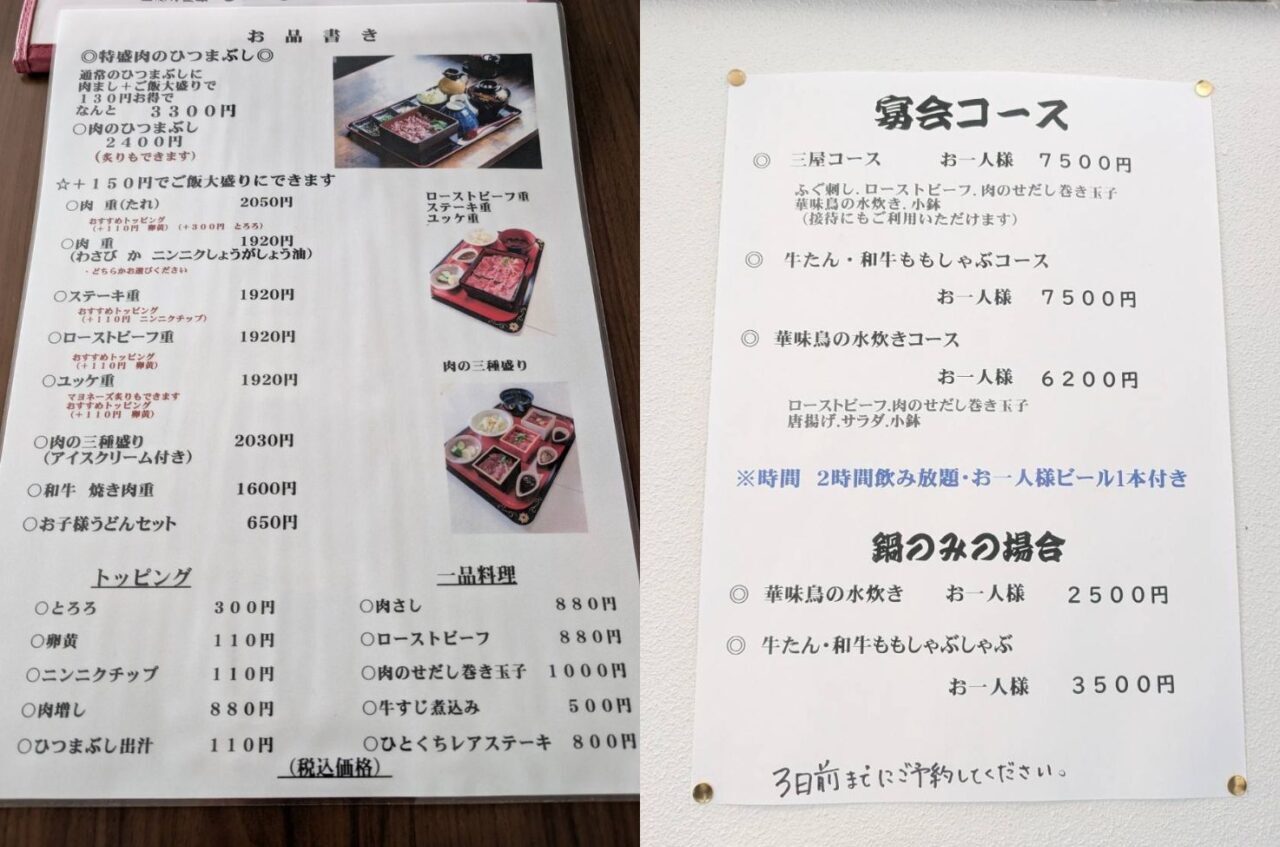 お 品 書 き
◎特盛肉のひつまぶし◎
通常のひつまぶしに
肉まし＋ご飯大盛りで
１３０円お得で
なんと ３３００円
○肉のひつまぶし
２４００円
（炙りもできます）
☆＋１５０円でご飯大盛りにできます
○肉 重(たれ) 2050円
おすすめトッピング
(＋１１０円 卵黄) (＋３００円 とろろ)
○肉 重 1920円
(わさび か ニンニクしょうがしょう油)
・どちらかお選びください
○ステーキ重 1920円
おすすめトッピング
(＋１１０円 ニンニクチップ)
○ローストビーフ重 1920円
おすすめトッピング
(＋１１０円 卵黄)
○ユッケ重 1920円
マヨネーズ炙りもできます
おすすめトッピング
(＋１１０円 卵黄)
○肉の三種盛り 2030円
(アイスクリーム付き)
○和牛 焼き肉重 1600円
○お子様うどんセット 650円
ローストビーフ重
ステーキ重
ユッケ重
肉の三種盛り
トッピング
○とろろ ３００円
○卵黄 １１０円
○ニンニクチップ １１０円
○肉増し ８８０円
○ひつまぶし出汁 １１０円
一品料理
○肉さし ８８０円
○ローストビーフ ８８０円
○肉のせだし巻き玉子 １０００円
○牛すじ煮込み ５００円
○ひとくちレアステーキ ８００円
（税込価格）
宴会コース
◎ 三屋コース お一人様 ７５００円
ふぐ刺し．ローストビーフ．肉のせだし巻き玉子
華味鳥の水炊き．小鉢
（接待にもご利用いただけます）
◎ 牛たん・和牛ももしゃぶコース
お一人様 ７５００円
◎ 華味鳥の水炊きコース
お一人様 ６２００円
ローストビーフ．肉のせだし巻き玉子
唐揚げ．サラダ．小鉢
※時間 2時間飲み放題・お一人様ビール1本付き
鍋のみの場合
◎ 華味鳥の水炊き お一人様 ２５００円
◎ 牛たん・和牛ももしゃぶしゃぶ
お一人様 ３５００円
3日前までにご予約してください。